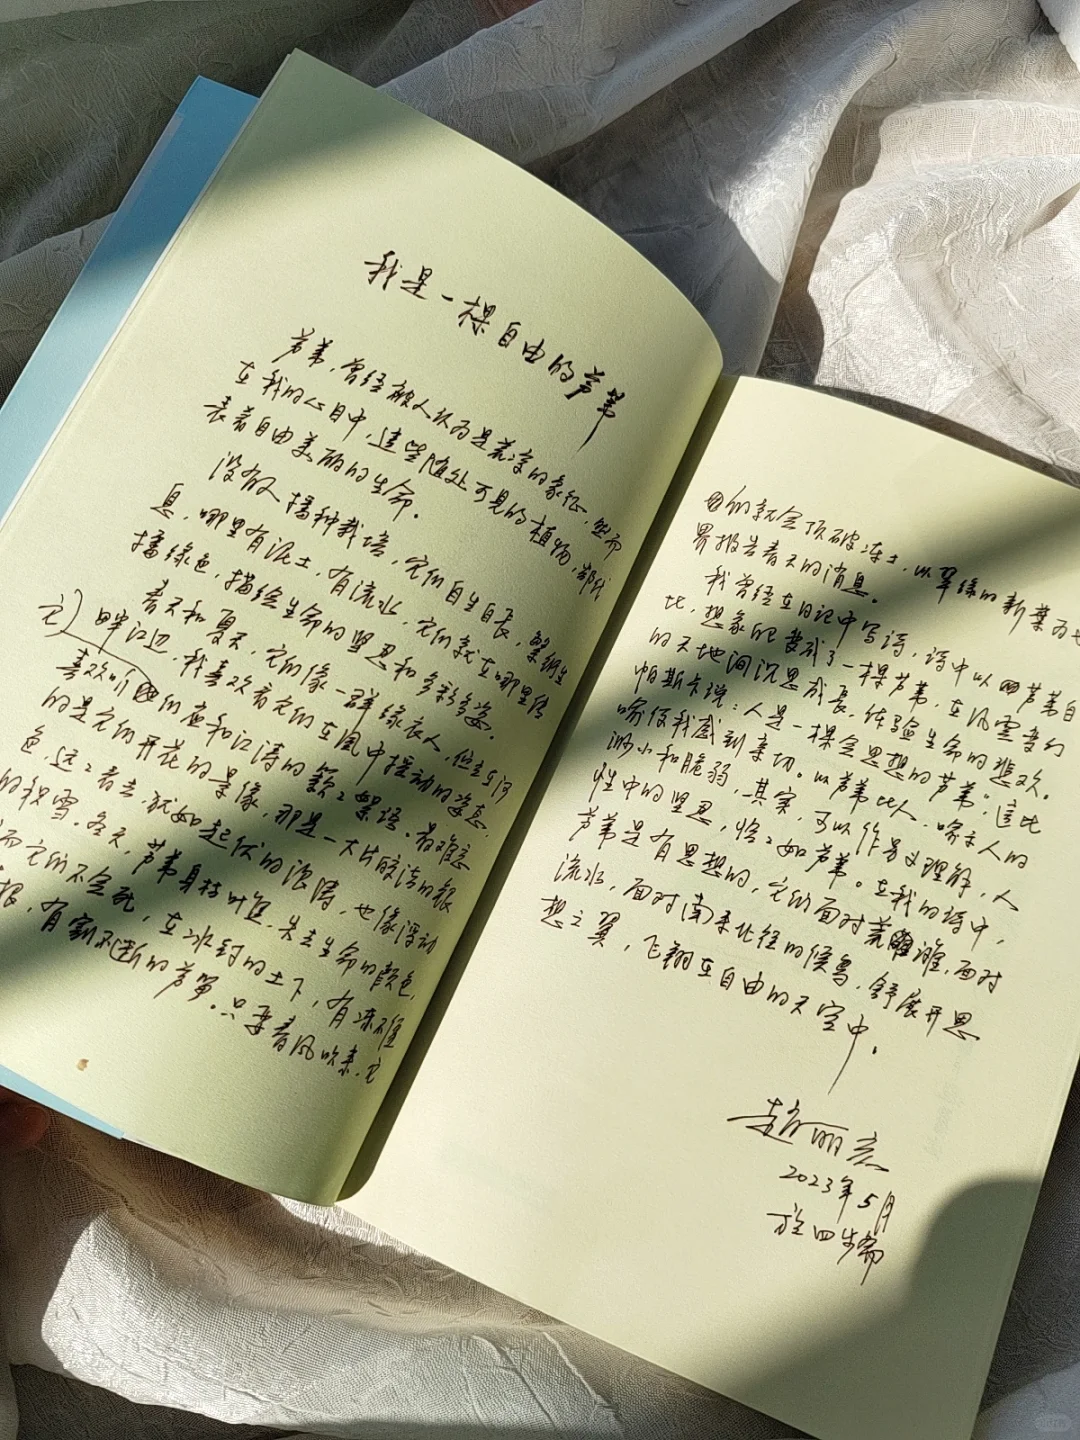 我是一棵自由的芦苇
芦苇，曾经被人认为是荒凉的象征，然而
在我的心目中，这些随处可见的植物，都代
表着自由美丽的生命。
没有人播种栽培，它们自生自长，繁衍生
息，哪里有泥土，有流水，它们就在哪里传
播绿色，描绘生命的坚忍和多彩多姿。
春天和夏天，它们像一群绿衣人，伫立在河
畔江边，我喜欢看它们在风中摇动的姿态，
喜欢听它们和江涛的籁籁絮语。最难忘
的是它们开花的景像，那是一大片皎洁的银
色，远远看去，犹如起伏的浪涛，也像浮动
的积雪。冬天，芦苇身枯叶焦，失去生命的颜色，
而它们不会死，在冰封的土下，有冻不僵
根，有割不断的芦笋。只要春风吹来，它
们就会顶破冻土，以翠绿的新芽为世
界报告春天的消息。
我曾经在日记中写诗，诗中以芦苇自
比，想象自己变成了一棵芦苇，在风云变幻
的天地间沉思成长，体验生命的悲欢。
帕斯卡说：人是一棵会思想的芦苇。这比
喻使我感到亲切。以芦苇比人，喻示人的
渺小和脆弱，其实，可以作另义理解，人
性中的坚忍，恰恰如芦苇。在我的诗中，
芦苇是有思想的，它们面对荒滩，面对
流水，面对南来北往的候鸟，舒展开思
想之翼，飞翔在自由的天空中。
赵丽宏
2023年5月
于四步斋